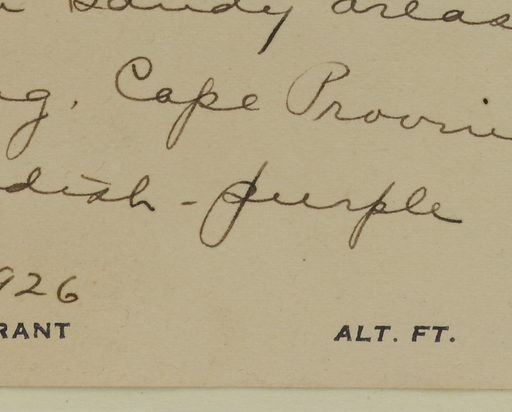 Sandy areas
g, Cape Provin
dish-purple
926
RANT ALT. FT.